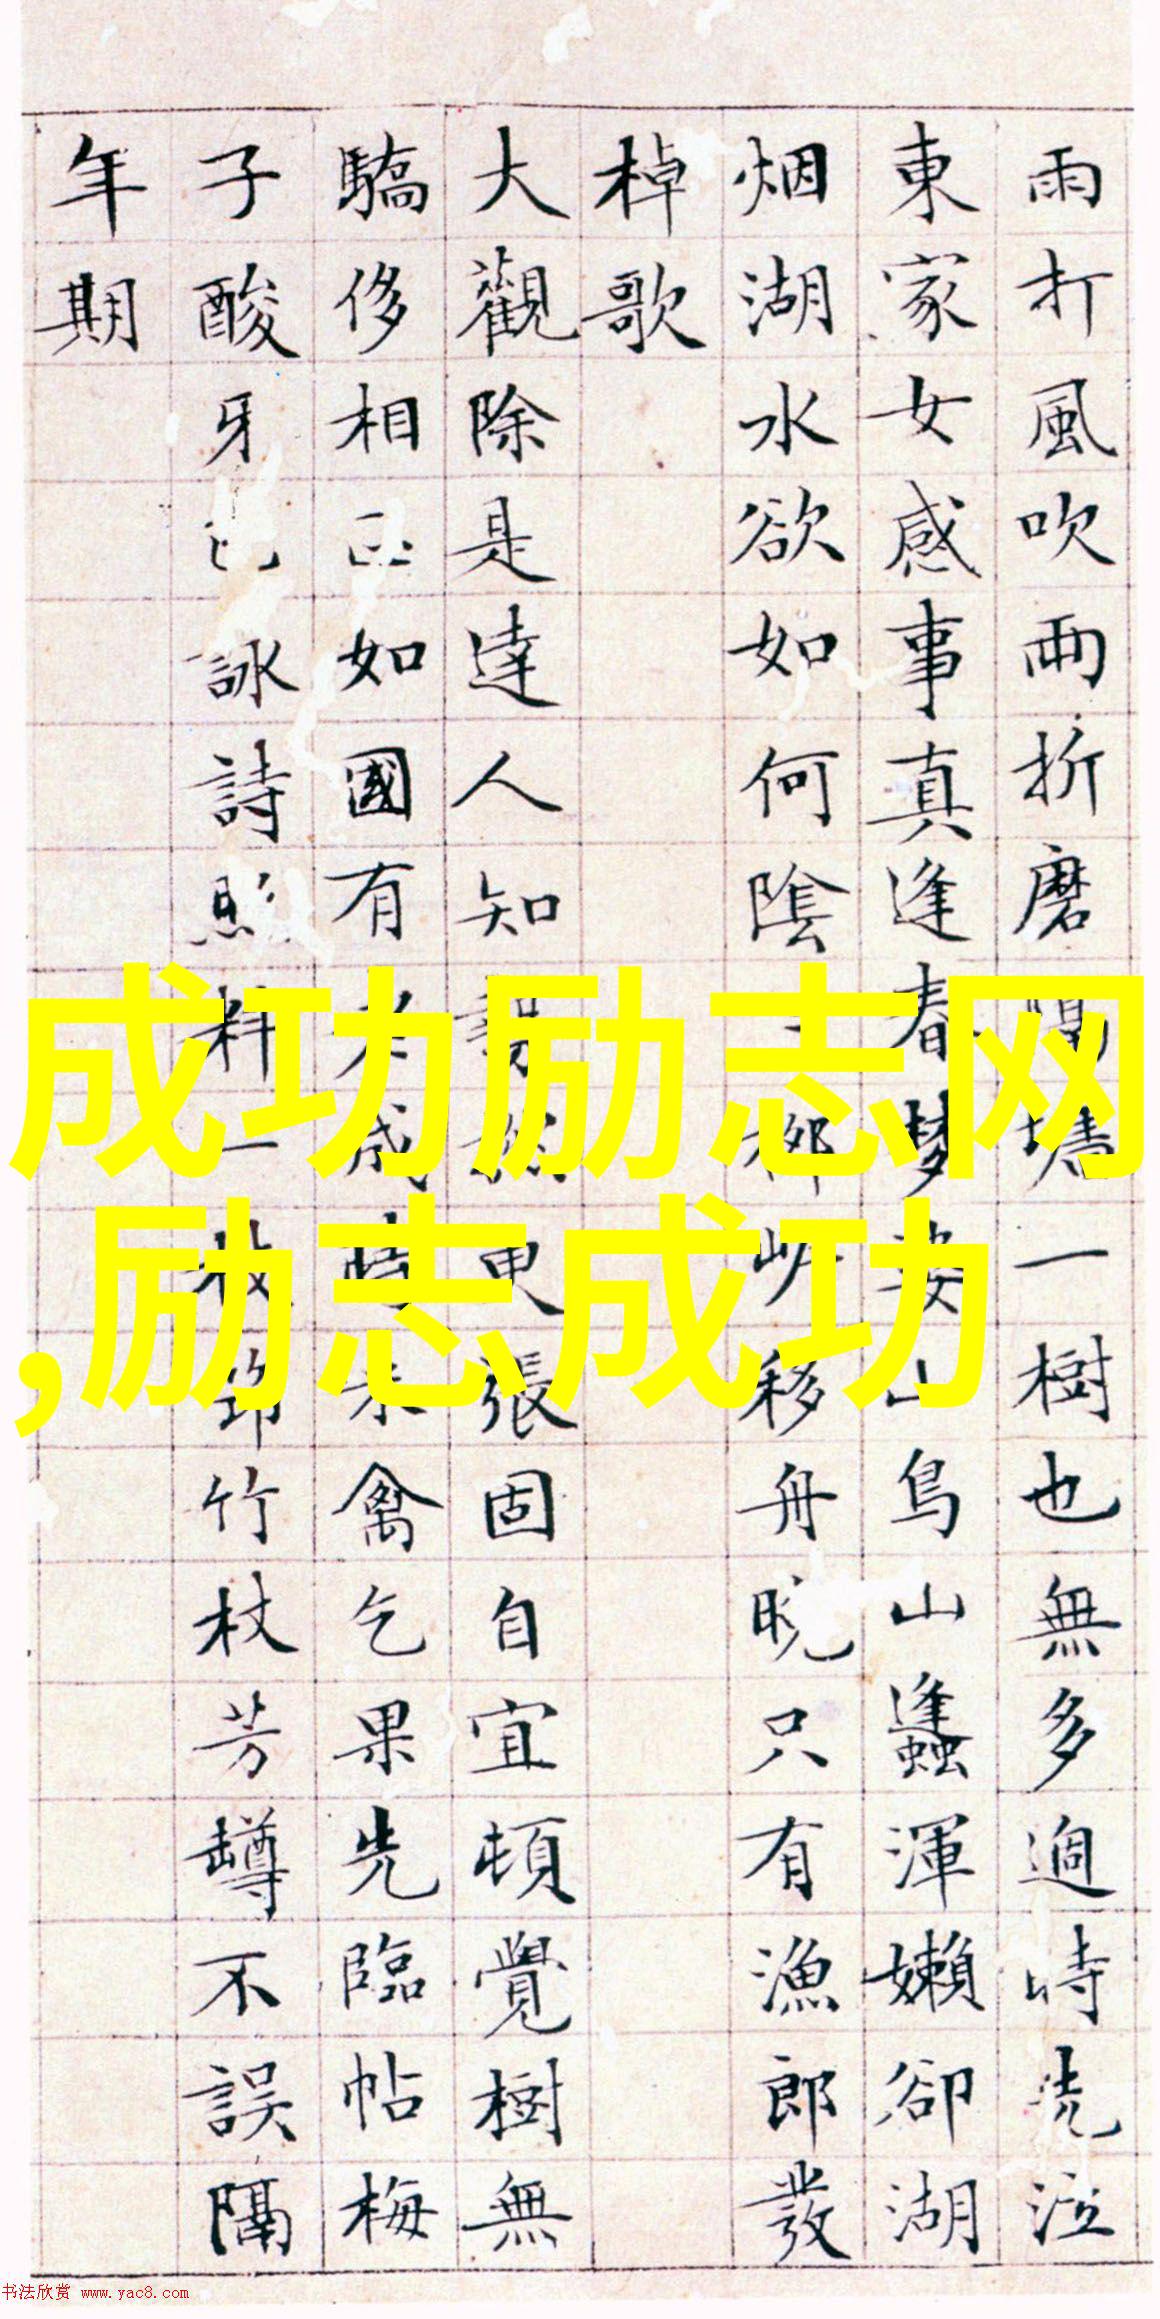 雨打風吹兩折磨 墻一樹也無多過時洗泣
東家女感事真逢春夢婆山鳥山蠭渾嬾卻湖
烟湖水欲如何陰 柳岍移舟晚只有漁郎發
棹歌
大觀除是達人知 更張固自宜頓覺樹無
驕侈相 如國有 成時 禽乞果先臨帖梅
子酸牙 詠詩 料一枝筇竹杖芳罇不誤隔
年期
成功励志网
,励志成功
书法欣赏 www.yac8.com